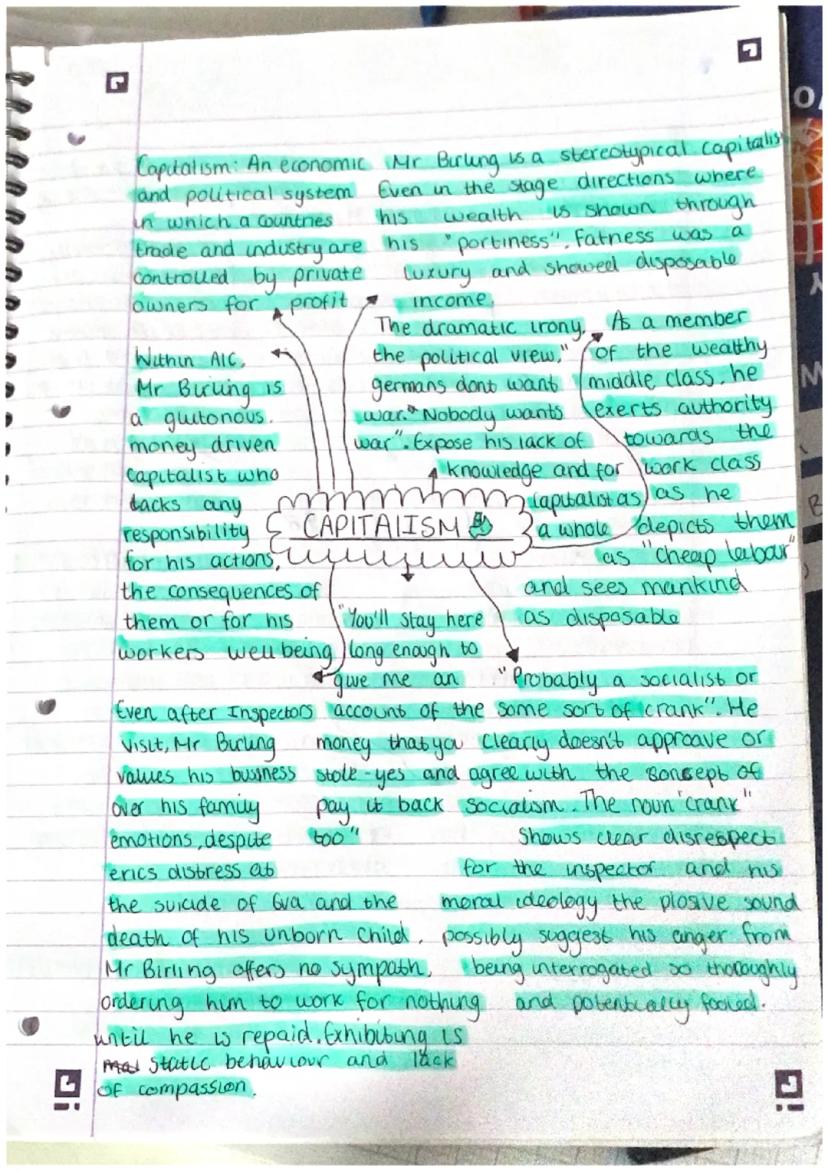 Capitalism: An economic
and political system
in which a countries
trade and industry are
controlled by private
owners for profit
Mr Birling is a stereotypical capitalist
Even in the stage directions where
his wealth is shown through
his "portiness". Fatness was a
luxury and showed disposable
income.
Within AIC,
Mr Birling is
a glutonous.
money driven
capitalist who
lacks any
responsibility
for his actions,
the consequences of
them or for his
workers wellbeing
The dramatic irony,
the political view, "
germans dont want
war." Nobody wants
war". Expose his lack of
knowledge and for
capitalist as
a whole
As a member
of the wealthy
middle class, he
exerts authority
towards the
work class
as he
depicts them
as "cheap labour"
and sees mankind
as disposable
CAPITALISM
"You'll stay here
long enough to
give me an
account of the
money that you
stole - yes and
pay it back
too"
"Probably a socialist or
some sort of crank". He
clearly doesn't approave or
agree with the concept of
socialism. The noun "crank"
shows clear disrespect
for the inspector and his
moral ideology the plosive sound
possibly suggest his anger from
being interrogated so thoroughly
and potentially fooled.
Even after Inspectors
visit, Mr Birling
values his business
over his family
emotions, despite
erics distress at
the suicide of Eva and the
death of his unborn child.
Mr Birling offers no sympath,
ordering him to work for nothing
until he is repaid. Exhibiting is
static behaviour and lack
of compassion.